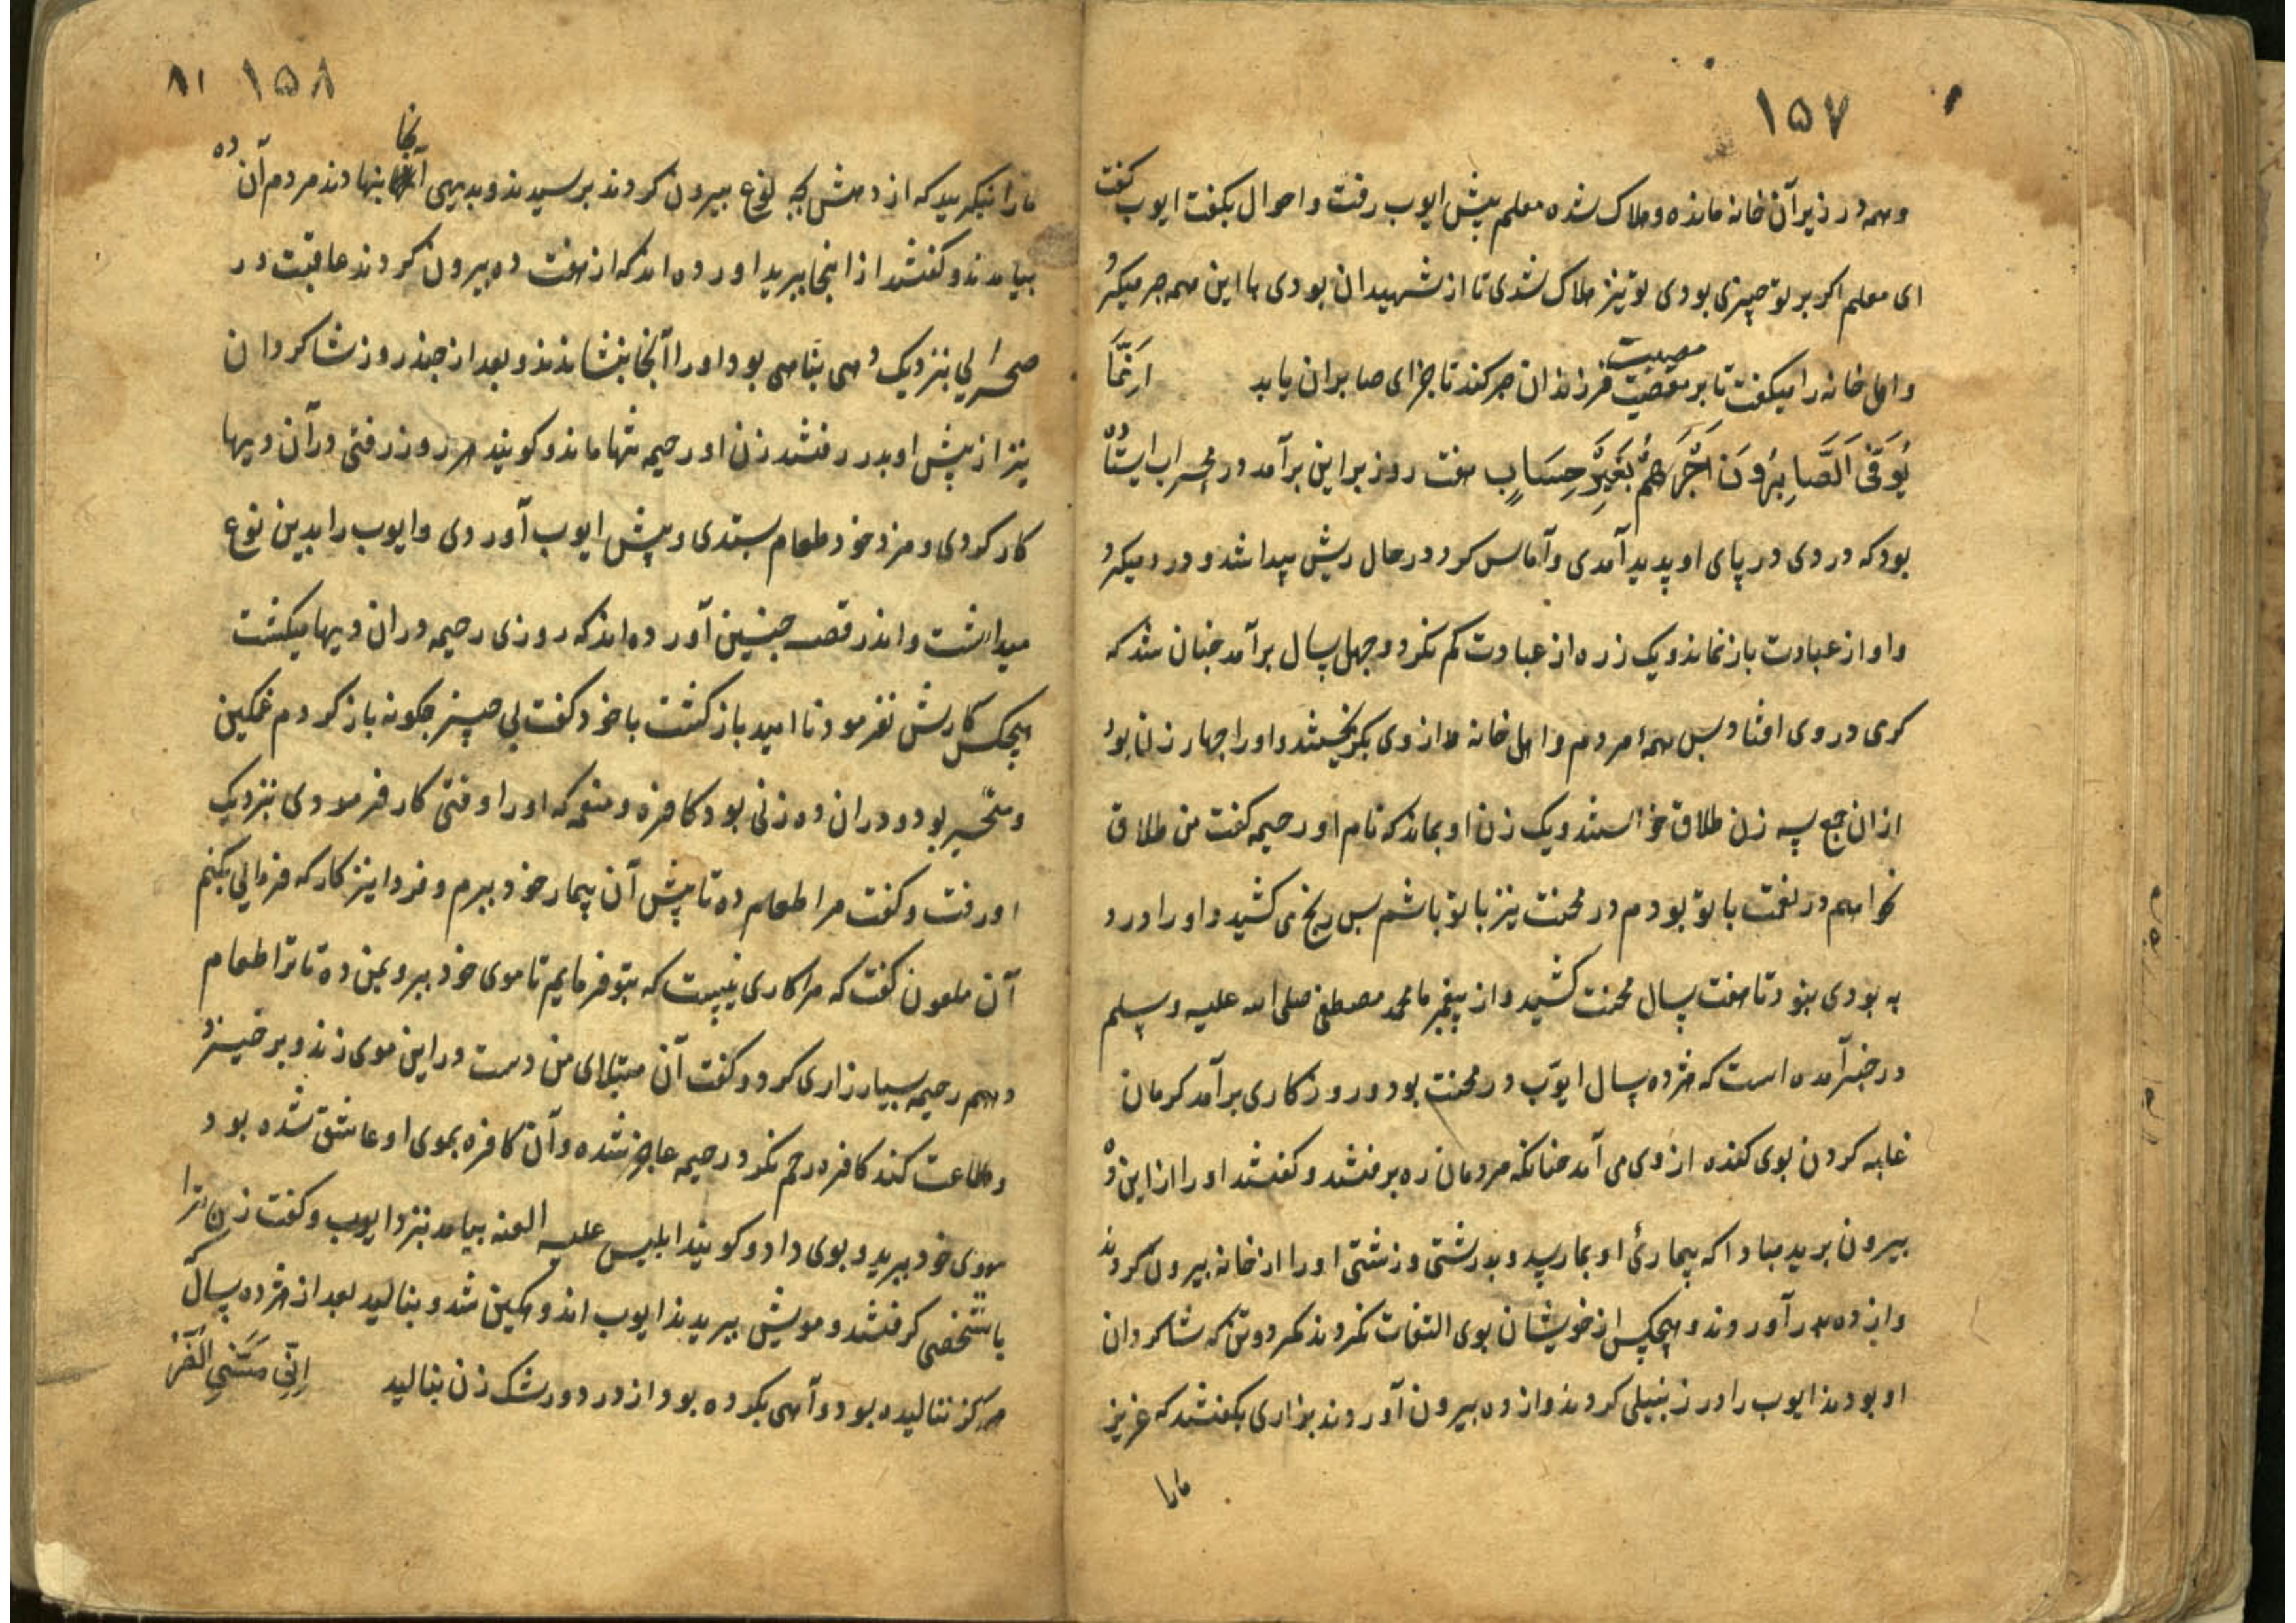 ۱۵۷
وهمه در زیر آن خانه مانده وهلاک شده معلم پیش ایوب رفت واحوال بکفت ایوب کفت
ای معلم اکر بر تو چیزی بودی تو نیز هلاک شدی تا از شهیدان بودی با این همه صبر میکرد
واهل خانه را میکفت تا بر مصیبت فرزندان صبر کند تا جزای صابران یابد اِنَّمَا
یُوَفَّی اَلصَّابِرُونَ اَجْرَهُمْ بِغَیْرِ حِسَابٍ هفت روز بر این برآمد در محراب ایستاده
بود که دردی در پای او پدید آمدی وآماس کرد در حال ریش پیدا شد ودرد میکرد
واو از عبادت باز نماند ویک زره از عبادت کم نکرد وچهل سال برآمد چنان شد که
کرمی در وی افتاد پس همهٔ مردم واهل خانه از وی بکریختند واورا چهار زن بود
ازان جمع سه زن طلاق خواستند ویک زن او بماند که نام او رحیمه کفت من طلاق
نخواهم در نعمت با تو بودم در محنت نیز با تو باشم پس رنج می کشید واورا درد
به بودی نبود تا هفت سال محنت کشید واز پیغمبر ما محمد مصطفی صلی الله علیه وسلم
در خبر آمده است که هژده سال ایوب در محنت بود وروزکاری برآمد کرمان
غلبه کردن بوی کنده از وی می آمد چنانکه مردمان ده برفتند وکفتند اورا از این ده
بیرون برید مبادا که بیماریٔ او بما رسد وبدرشتی وزشتی اورا از خانه بیرون کردند
واز ده بدر آوردند وهیچکس از خویشان بوی التفات نکردند مکر دو تن که شاکردان
او بودند ایوب را در زنبیلی کردند واز ده بیرون آوردند بزاری بکفتند که عزیز
مارا
۱۵۸ ۸۱
مارا نیکرید که از دهش بچه نوع بیرون کردند برسیدند وبدیهی آنجا بنهادند مردم آن ده
بیامدند وکفتند از اینجا ببرید اورده اند که از هفت ده بیرون کردند عاقبت در
صحرایی بنزدیک دهی بناهی بود اورا آنجا بنشاندند وبعد از چند روز شاکردان
نیز از پیش او بدر رفتند زن او رحیمه تنها ماند وکویند هر روز رفتی در آن دیها
کار کردی ومزد خود طعام ستدی وپیش ایوب آوردی وایوب را بدین نوع
میداشت واندر قصه چنین آورده اند که روزی رحیمه دران دیها میکشت
هیچکس کارش نفرمود نا امید باز کشت با خود کفت بی چیز چکونه باز کردم غمکین
ومتحیر بود ودران ده زنی بود کافره ومنعمه که اورا وقتی کار فرمودی بنزدیک
او رفت وکفت مرا طعام ده تا پیش آن بیمار خود ببرم وفردا نیز کار که فرمایی بکنم
آن ملعون کفت که مرا کاری نیست که بتو فرمایم تا موی خود ببر وبمن ده تا ترا طعام
دهم رحیمه بسیار زاری کرد وکفت آن مبتلای من دست در این موی زند وبر خیزد
وطاعت کند کافره رحم نکرد رحیمه عاجز شده وآن کافره بموی او عاشق شده بود
موی خود ببرید وبوی داد وکویند ابلیس علیه العنه بیامد بنزد ایوب وکفت زن ترا
با شخصی کرفتند ومویش ببریدند ایوب اندوهکین شد وبنالید بعد از هژده سال که
هرکز ننالیده بود وآهی نکرده بود از درد ورشک زن بنالید اِنِّی مَسَّنِیَ الضُّرُّ